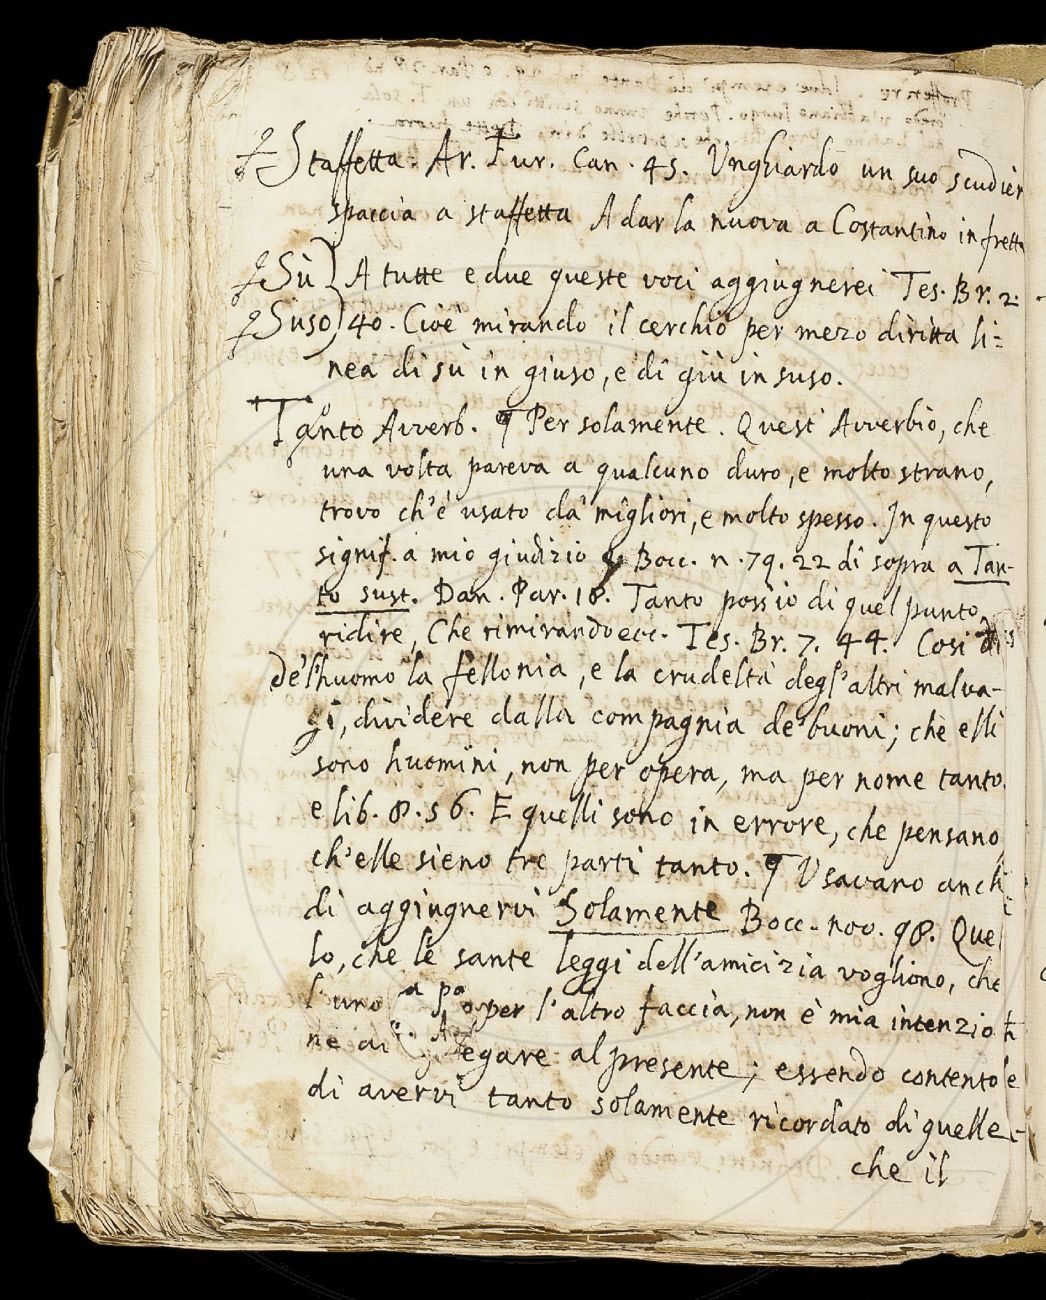 Staffetta. Ar. Fur. Can. 45. Ungliardo un suo scudier
spaccia a staffetta A dar la nuova a Costantino in fretta
Sù } A tutte e due queste voci aggiugnerei Tes. Br. 2.
Suso } 40. Cioè mirando il cerchio per mezo diritta li=
nea di sù in giuso, e di giù in suso.
Tanto Avverb. ¶ Per solamente. Quest Avverbio, che
una volta pareva a qualcuno duro, e molto strano,
trovo ch'è usato dà migliori, e molto spesso. In questo
signif. a mio giudizio Bocc. n. 79. 22 di sopra a Tan-
to sust. Dan. Par. 18. Tanto poss'io di quel punto
ridire, Che rimirando ecc. Tes. Br. 7. 44. Cosi
dell'huomo la fellonia, e la crudeltà degl'altri malva-
gi, dividere dalla compagnia de' buoni; chè elli
sono huomini, non per opera, ma per nome tanto.
e lib. 8. 56. E quelli sono in errore, che pensano,
ch'elle sieno tre parti tanto. ¶ Usavano anch
di aggiugnervi Solamente Bocc. nov. 98. Quel
lo, che le sante leggi dell'amicizia vogliono, che
l'uno per l'altro faccia, non è mia intenzio
ne di egare al presente; essendo contento
di avervi tanto solamente ricordato di quelle
che il